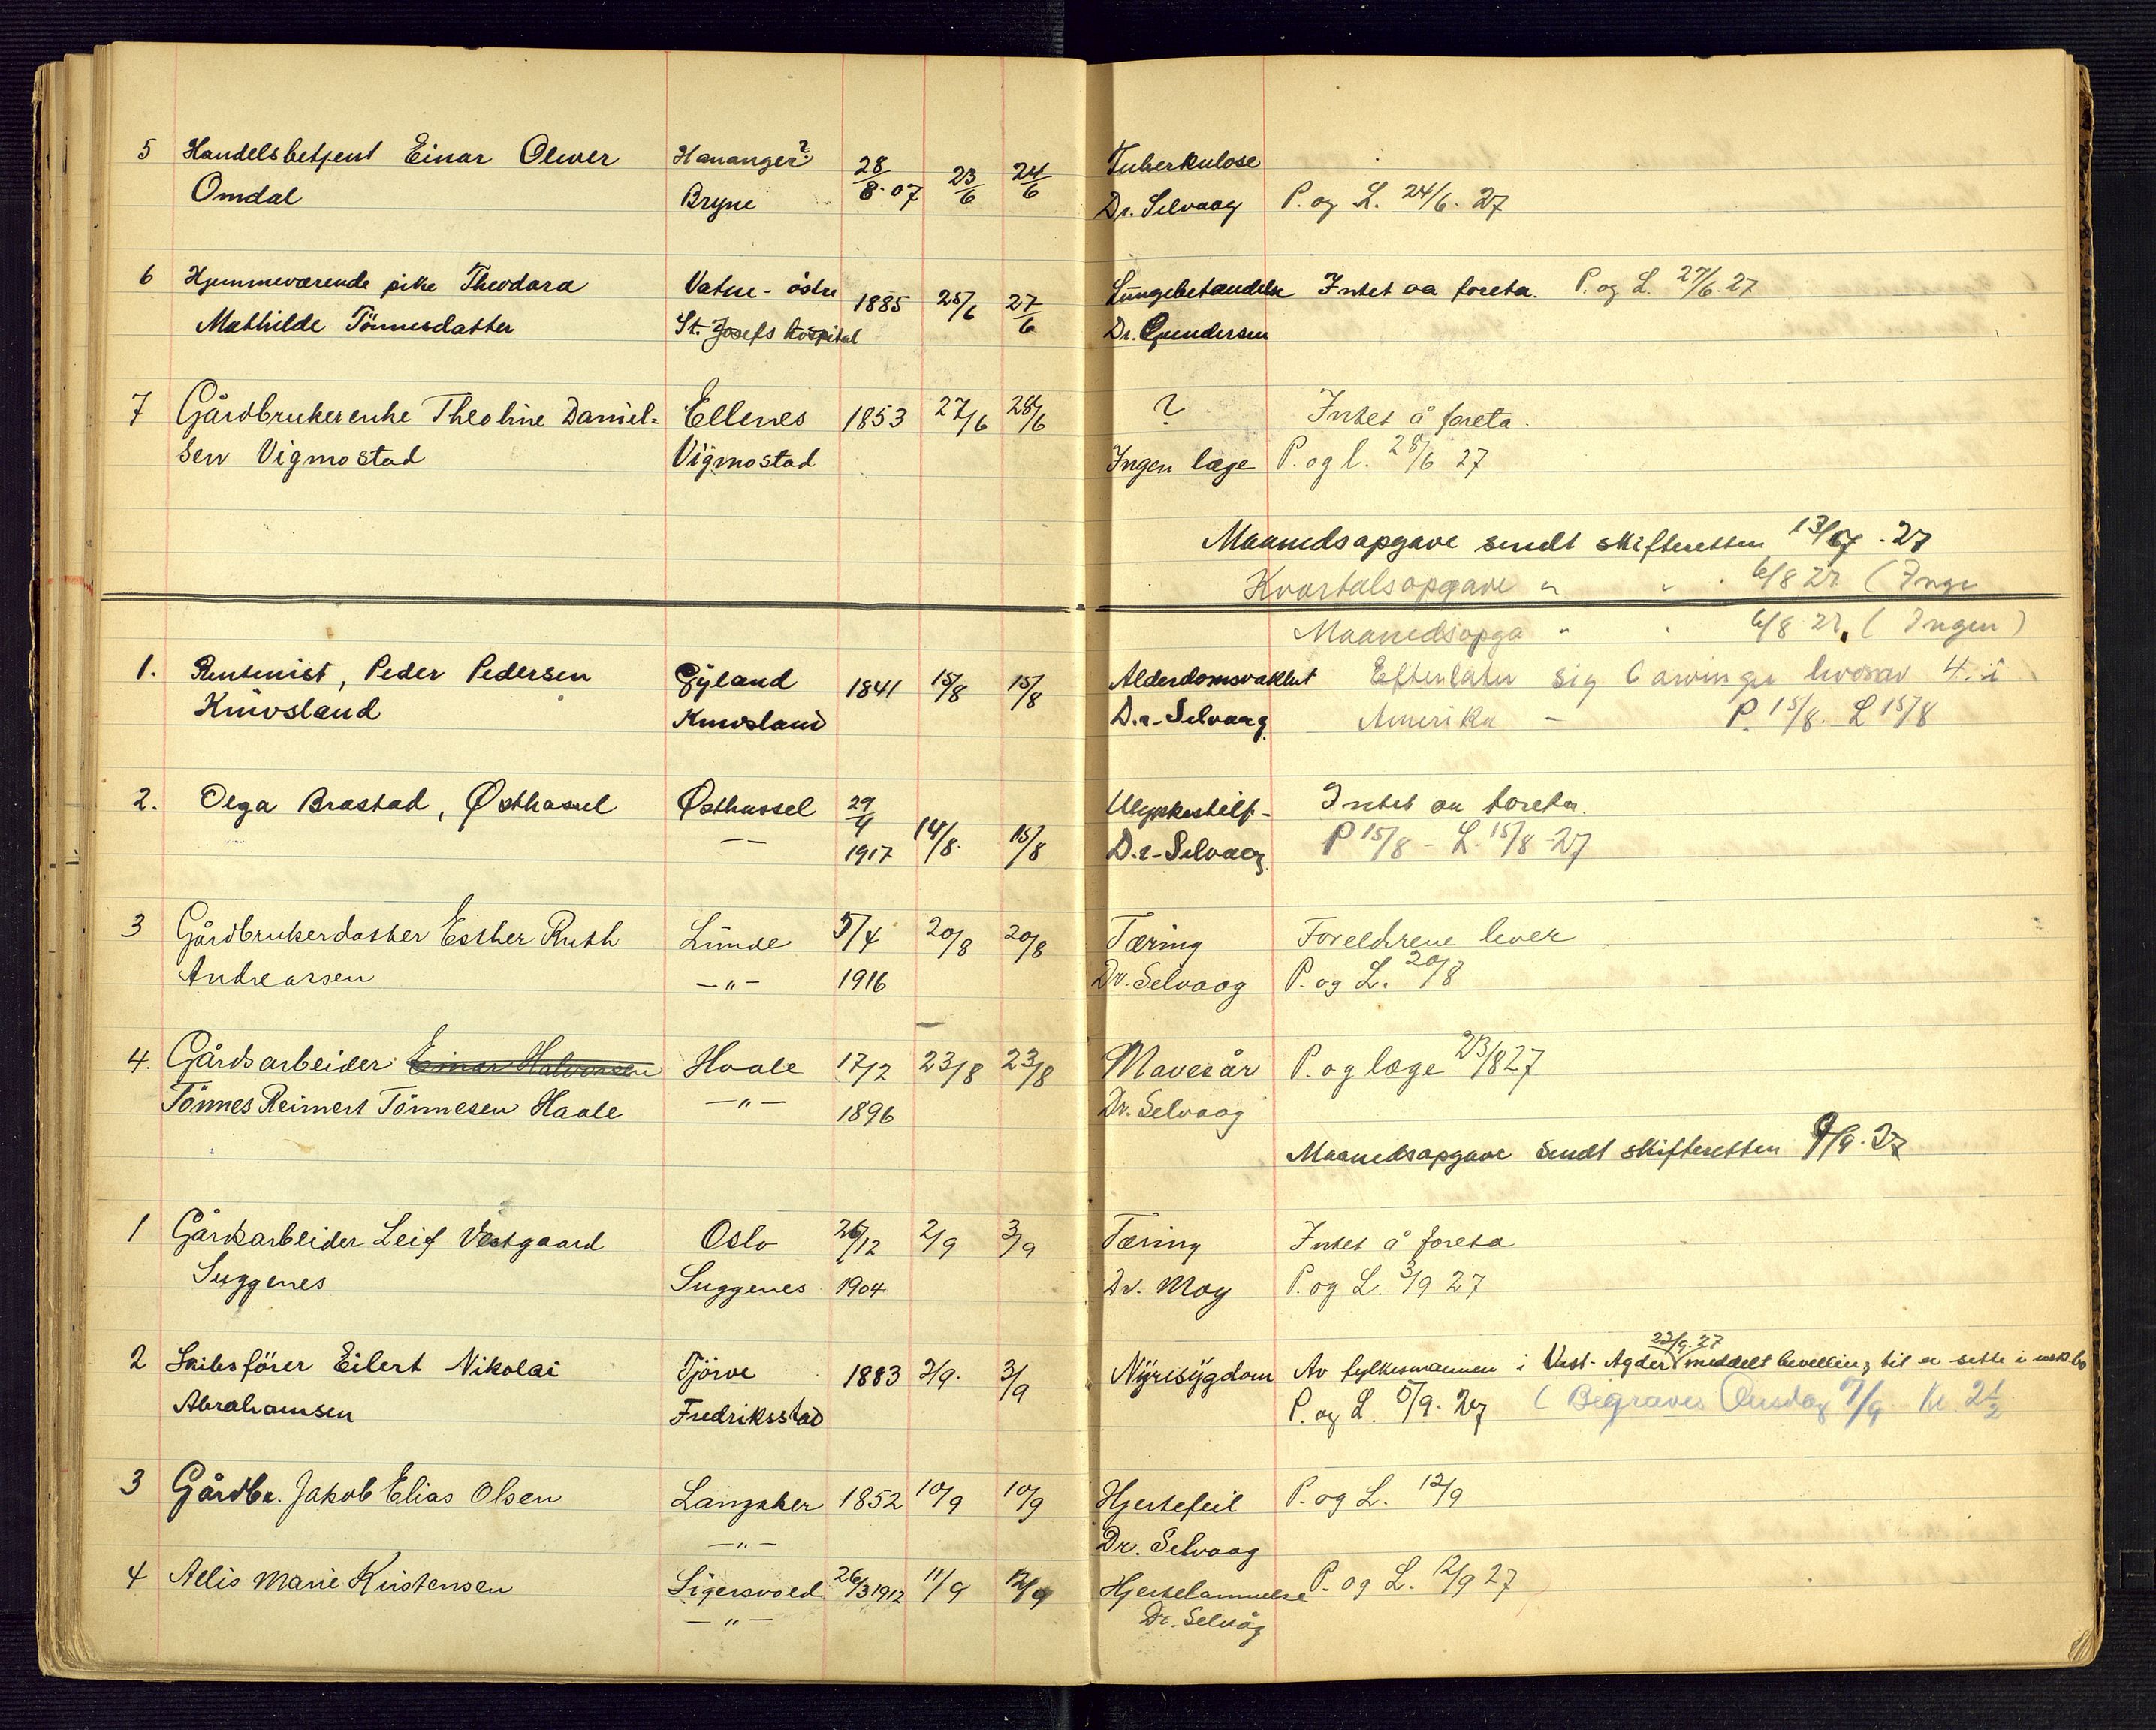 5 Handelsbetjent Einar Oliver Hananger? 28/8-07 23/6 24/6 Tuberkulose
Omdal Bryne Dr. Selvaag P. og L. 24/6. 27
6 Hjemmeværende pike Theodora Vatne - östre 1885 25/6 27/6 Lungebetændelse Intet aa foreta. P. og L. 27/6.27
Mathilde Tönnesdatter St. Josefs hospital Dr. Gundersen
7 Gårdbrukerenke Theoline Daniel= Ellenes 1853 27/6 28/6 ? Intet å foreta.
sen Vigmostad Vigmostad Ingen læge P. og l. 28/6 27
Maanedsopgave sendt skifteretten 13/7. 27
Kvartalsopgave " " 6/8 27 (Inge
Maanedsopga " " 6/8 27. (Ingen)
1. Rentenist, Peder Pedersen Gyland 1841 15/8 15/8 Alderdomsvakhet Efterlater sig 6 arvinger hvorav 4 i
Knivsland Knivsland D.r Selvaag Amerika - P. 15/8. L 15/8
2. Olga Brastad, Østhassel Østhassel 29/4 1917 14/8. 15/8 Ulykkestilf- Intet aa foreta.
— D.r Selvaag P 15/8 - L. 15/8 -27
3 Gårdbrukerdatter Esther Ruth Lunde 5/4 20/8 20/8 Tæring Foreldrene lever
Andreassen —"— 1916 Dr. Selvaag P. og L. 20/8
4. Gårdsarbeider Einar Halvorsen Haale 17/2 23/8 23/8 Mavesår P. og læge 23/8 27
Tönnes Reinert Tönnesen Haale —"— 1896 Dr. Selvaag
Maanedsopgave sendt skifteretten 9/9. 27
1 Gårdsarbeider Leif Vestgaard Oslo 26/12 2/9 3/9 Tæring Intet å foreta
Suggenes Suggenes 1904 Dr. Moy P. og L. 3/9 27
22/9.27
2 Skibsförer Eilert Nikolai Tjörve 1883 2/9. 3/9 Nyresygdom Av fylkesmannen i Vest-Agder meddelt bevelling til a sitte i usk. bo
Abrahamsen Fredriksstad P. og L. 5/9. 27 (Begraves Onsdag 7/9 Kl. 2 1/2
3 Gårdbr. Jakob Elias Olsen Langaker 1852 10/9 10/9 Hjertefeil P. og L. 12/9
—"— Dr. Selvaag
4 Aelis Marie Kristensen Sigersvold 26/3 1912 11/9 12/9 Hjertelammelse P. og L. 12/9 27
—"— Dr. Selvåg